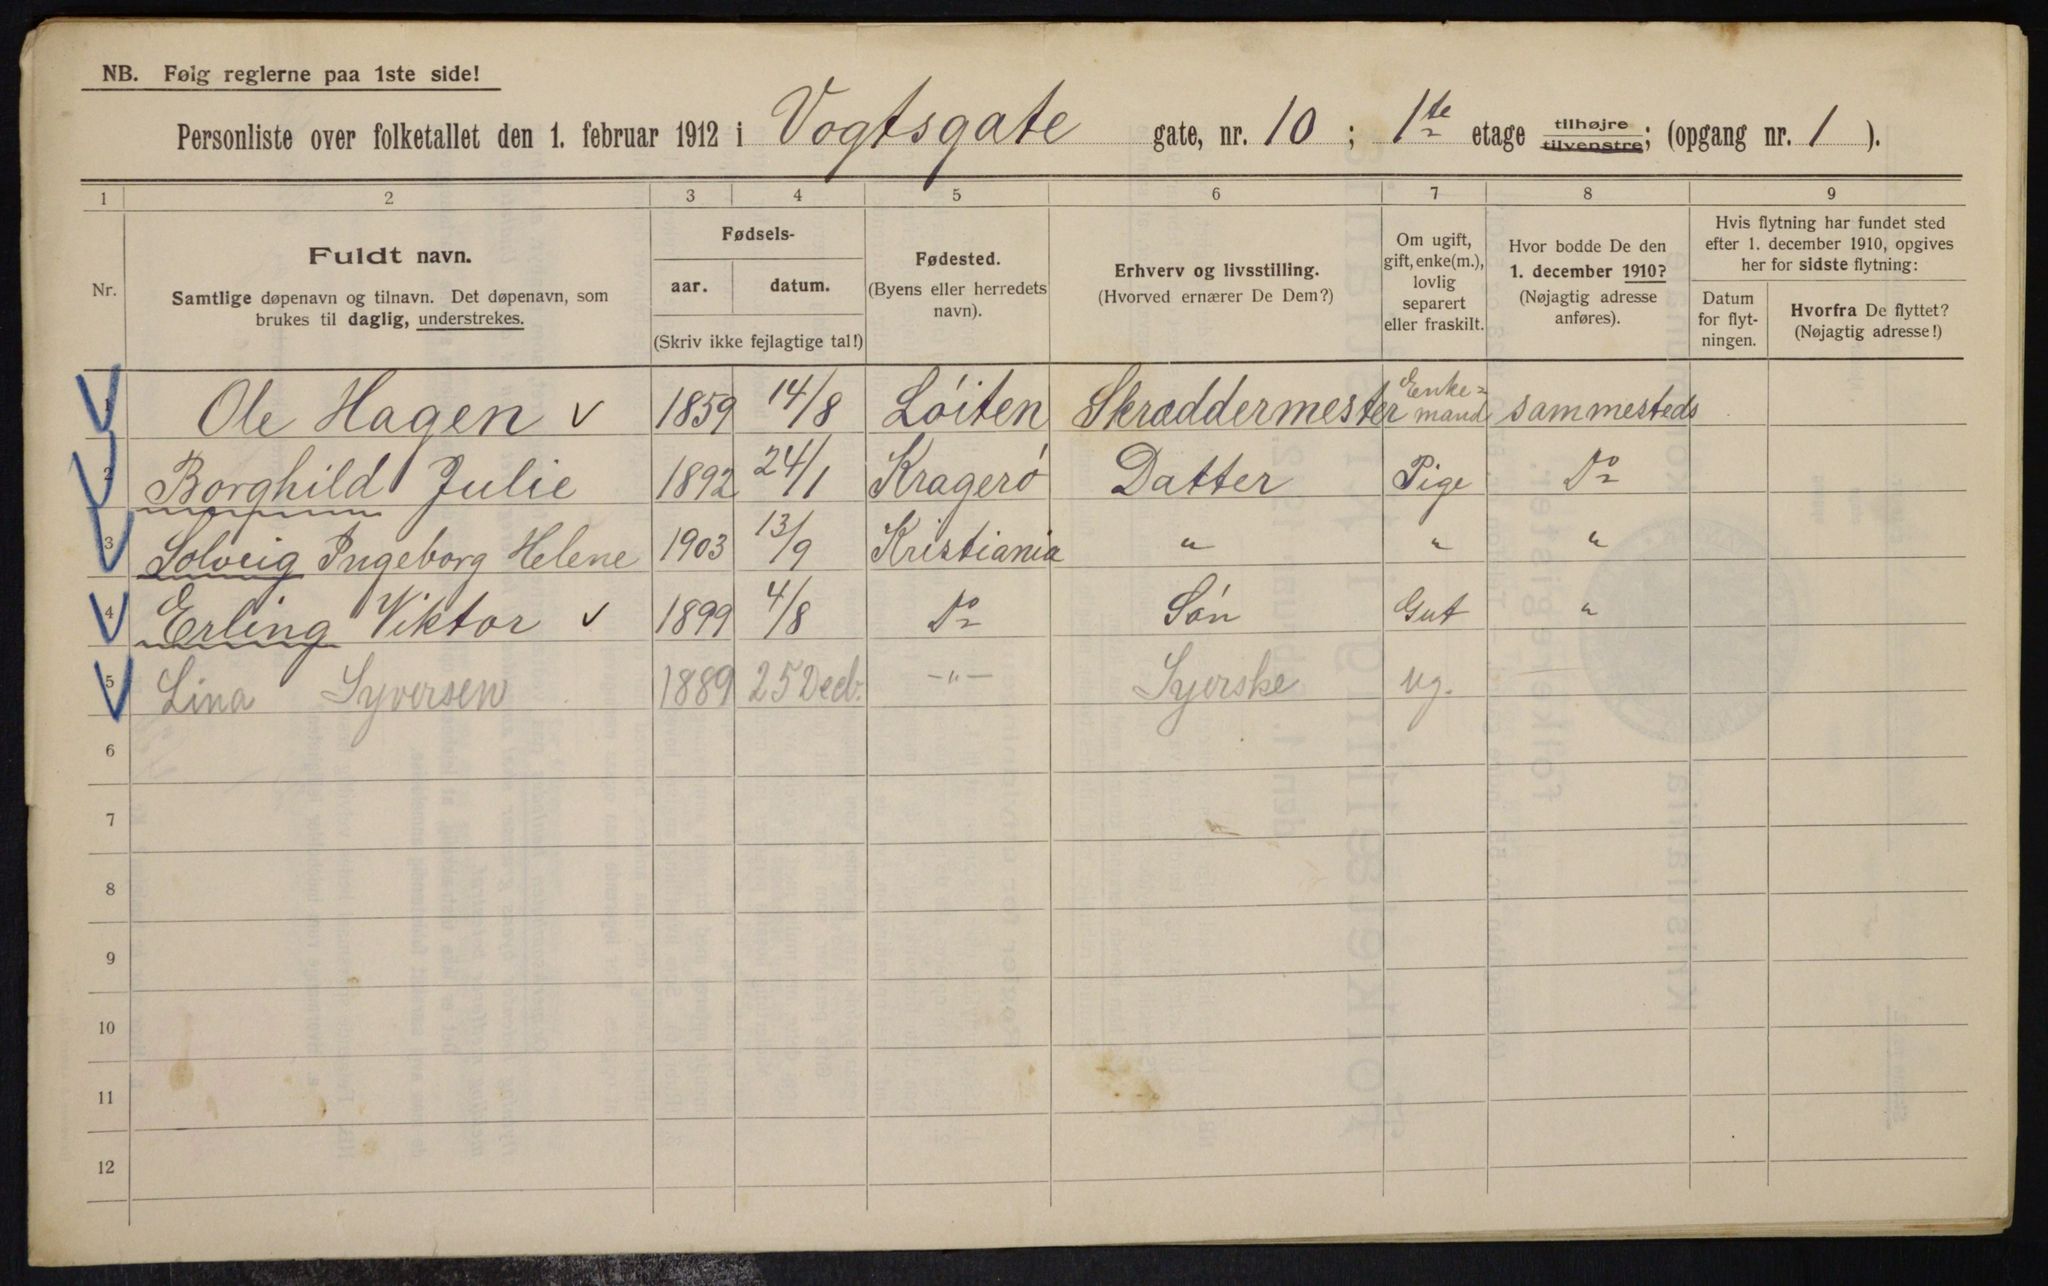 NB. Følg reglerne paa 1ste side!
Personliste over folketallet den 1. februar 1912 i Vogtsgate gate, nr. 10 ; 1ste etage tilhøjre tilvenstre; (opgang nr. 1 ).
1 2 3 4 5 6 7 8 9
Nr.
Fuldt navn.
Samtlige døpenavn og tilnavn. Det døpenavn, som
brukes til daglig, understrekes.
Fødsels-
aar. datum.
(Skriv ikke fejlagtige tal!)
Fødested.
(Byens eller herredets
navn).
Erhverv og livsstilling.
(Hvorved ernærer De Dem?)
Om ugift,
gift, enke(m.),
lovlig
separert
eller fraskilt.
Hvor bodde De den
1. december 1910?
(Nøjagtig adresse
anføres).
Hvis flytning har fundet sted
efter 1. december 1910, opgives
her for sidste flytning:
Datum
for flyt-
ningen.
Hvorfra De flyttet?
(Nøjagtig adresse!)
1 Ole Hagen v 1859 14/8 Løiten Skræddermester Enke=mand sammesteds
2 Borghild Julie 1892 24/1 Kragerö Datter Pige Do
3 Solveig Ingeborg Helene 1903 13/9 Kristiania " " "
4 Erling Viktor v 1899 4/8 Do Sön Gut "
5 Lina Syversen 1889 25 Decb. -"- Syerske ug.
6
7
8
9
10
11
12